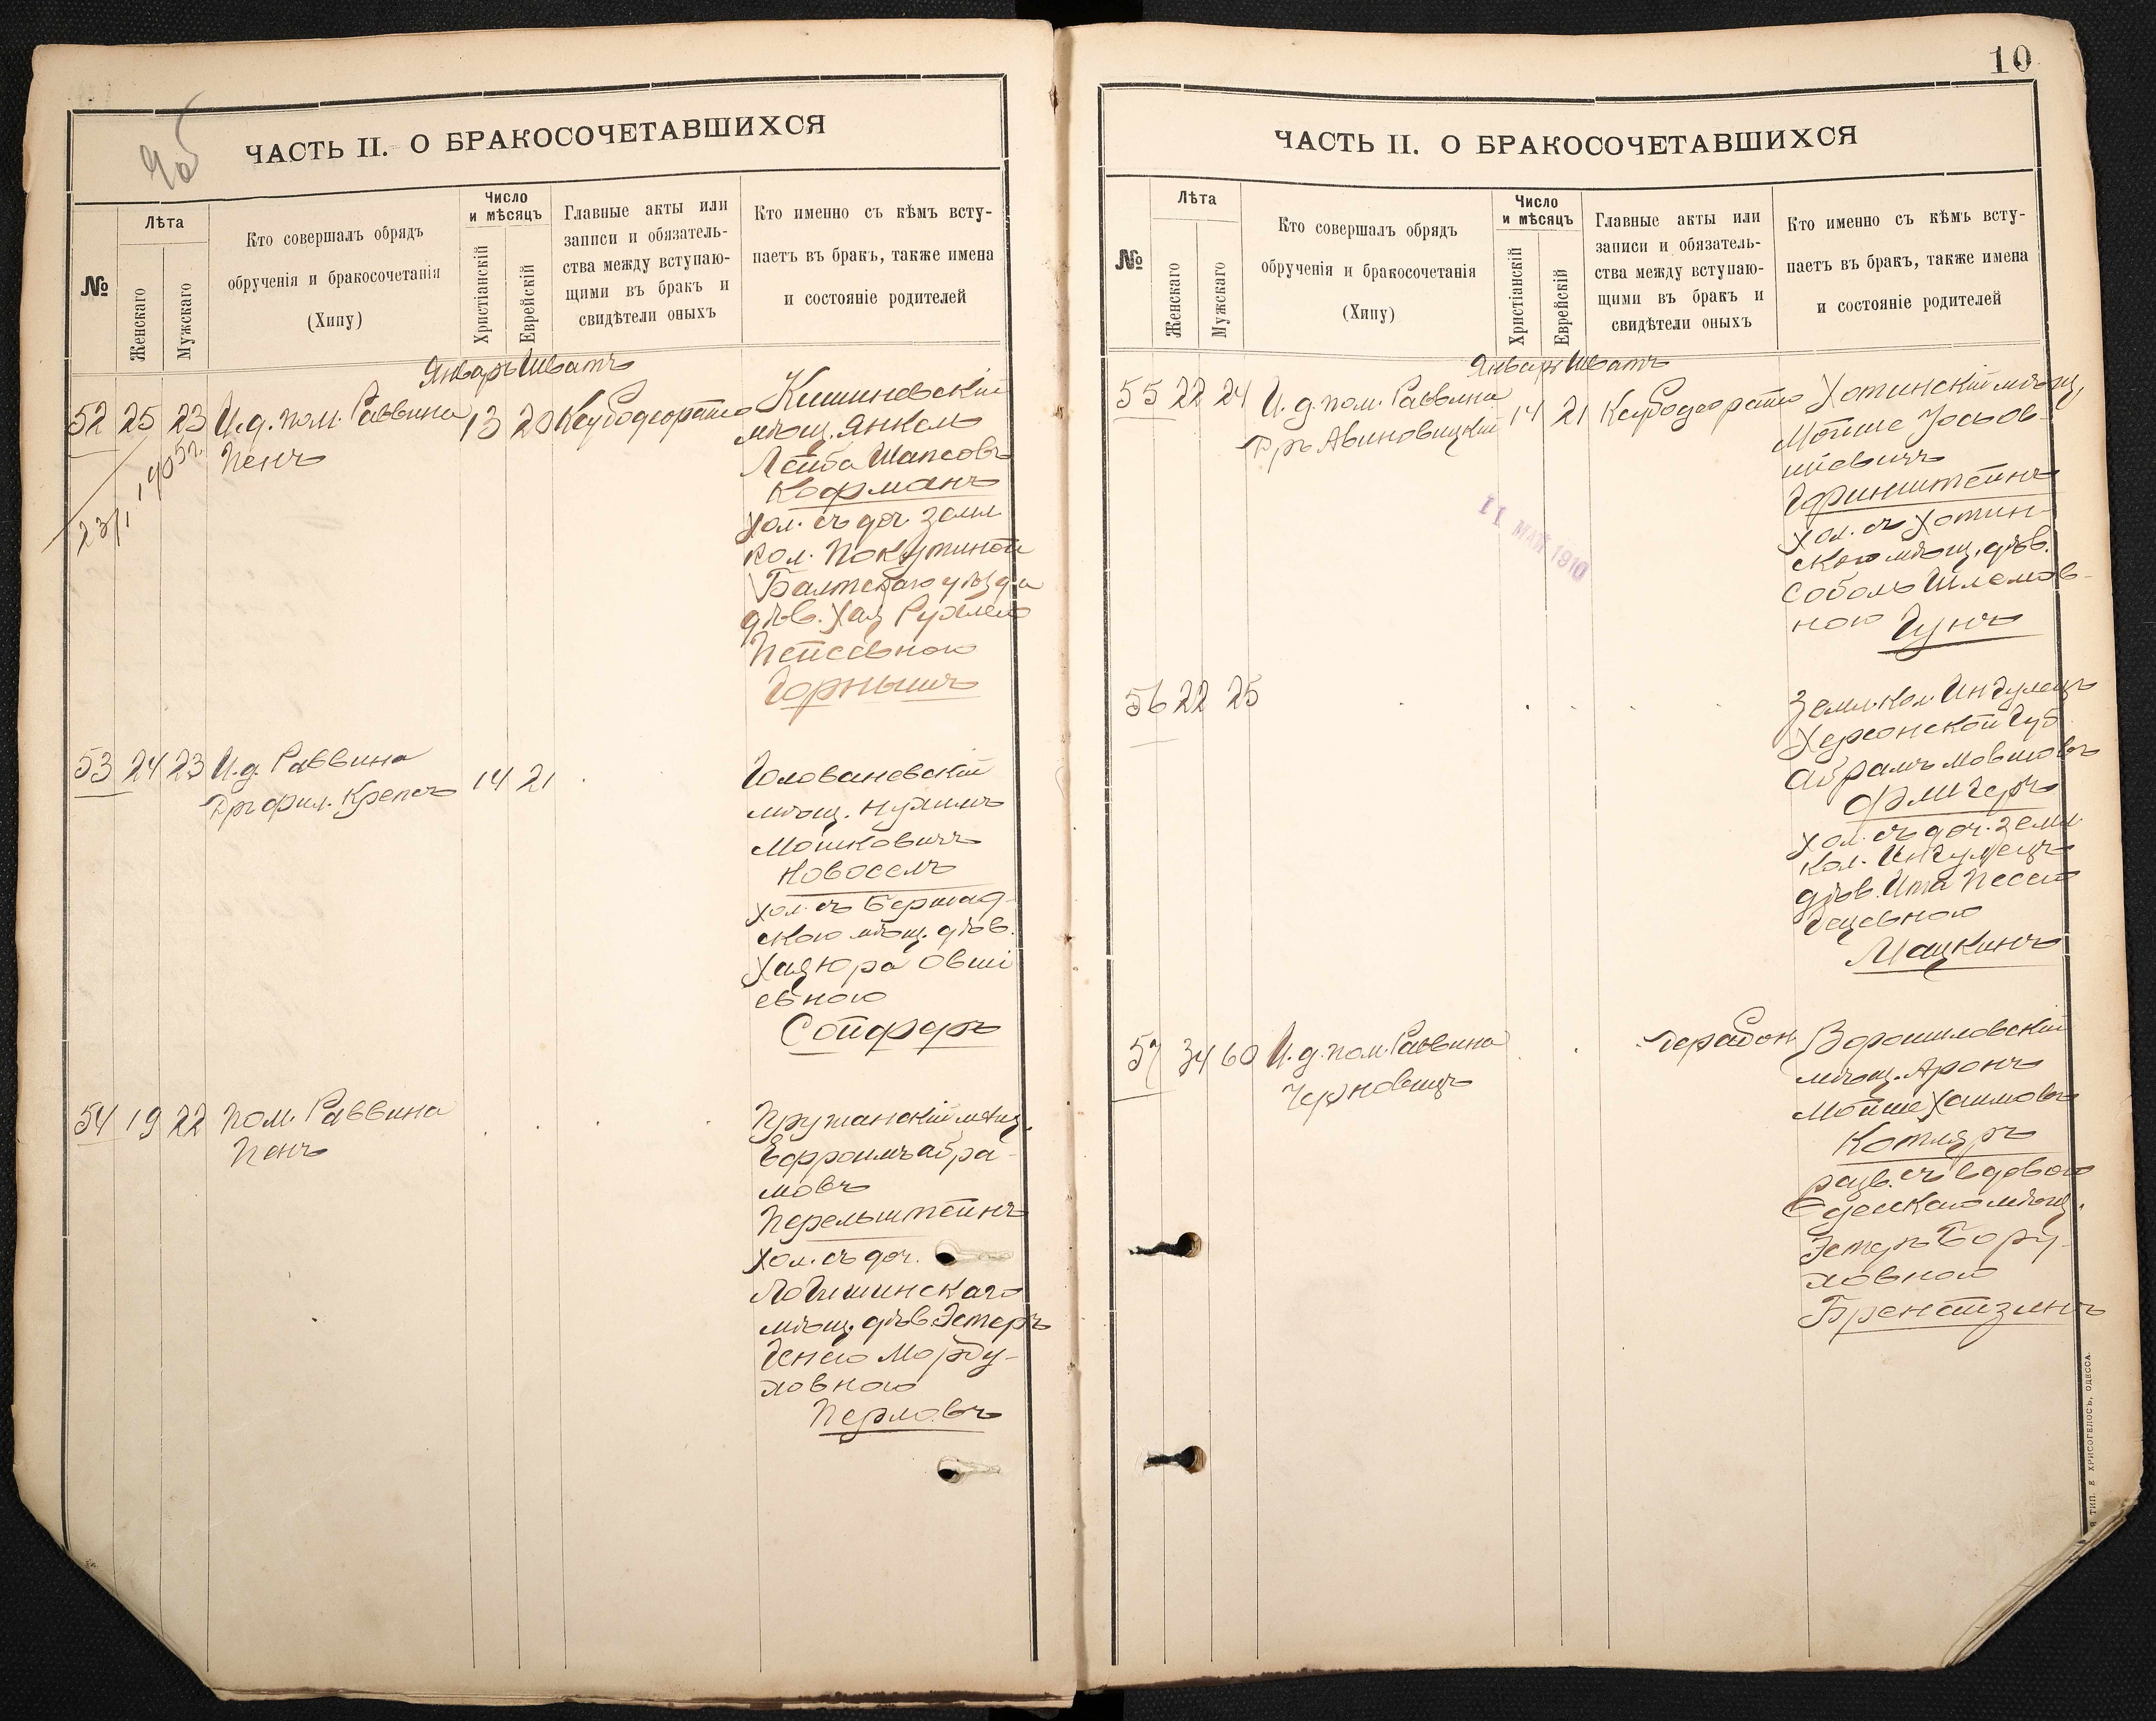 9об
ЧАСТЬ II. О БРАКОСОЧЕТАВШИХСЯ
№
Лѣта
Женскаго
Мужскаго
Кто совершалъ обрядъ
обрученія и бракосочетанія
(Хипу)
Число
и мѣсяцъ
Христіанскій
Еврейскій
Главные акты или
записи и обязатель-
ства между вступаю-
щими въ бракъ и
свидѣтели оныхъ
Кто именно съ кѣмъ всту-
паетъ въ бракъ, также имена
и состояніе родителей
Январь Шватъ
52 25 23 И.д. пом. Раввина 13 20
Пенъ
Кишиневскій
мѣщ. Янкель
Лейба Шапсовъ
Кофманъ
хол. съ доч. земл
кол. Покутиной
Балтскаго уѣзда
дѣв. Хая Рухлею
Пейсевною
Горнышъ
53 24 23 И.д. Раввина 14 21
Дръ фил. Крепсъ
Головановскій
мѣщ. Нухимъ
Мошковичъ
Новоселъ
хол. съ Бершад-
скою мѣщ. дѣв.
Хая Юра Овші
евною
Сойферъ
54 19 22 Пом. Раввина
Пенъ
Пружанскій мѣщ.
Ефроимъ Абра-
мовъ
Перельштейнъ
хол. съ доч.
Логишинскаго
мѣщ. дѣв. Эстеръ
Генею Морду-
ховною
Перловъ
10
ЧАСТЬ II. О БРАКОСОЧЕТАВШИХСЯ
№
Лѣта
Женскаго
Мужскаго
Кто совершалъ обрядъ
обрученія и бракосочетанія
(Хипу)
Число
и мѣсяцъ
Христіанскій
Еврейскій
Главные акты или
записи и обязатель-
ства между вступаю-
щими въ бракъ и
свидѣтели оныхъ
Кто именно съ кѣмъ всту-
паетъ въ бракъ, также имена
и состояніе родителей
Январь Шватъ
55 22 24 И.д. пом. Раввина 14 21
Дръ Авиновицкій
Хотинскій мѣщ
Мойше Іосьов-
шіевичъ
Гринштейнъ
хол. съ Хотин-
скою мѣщ. дѣв.
Соболь Шлемов-
ною Гунъ
11 МАЙ 1910
56 22 25
Земл. кол. Ингулецъ
Херсонской губ
Абрамъ Мовшовъ
Флигеръ
хол. съ доч. земл
кол. Ингулецъ
дѣв. Ита Песею
Гецевною
Мацкинъ
57 34 60 И.д. пом. Раввина
Черновицъ
Ворошиловскій
мѣщ. Аронъ
Мойше Хаимовъ
Котляръ
разв. съ вдовою
Одесскаго мѣщ.
Эстеръ Бору-
ховною
Брейтзинъ
ТИП. Е ХРИСОГЕЛОСЪ, ОДЕССА.